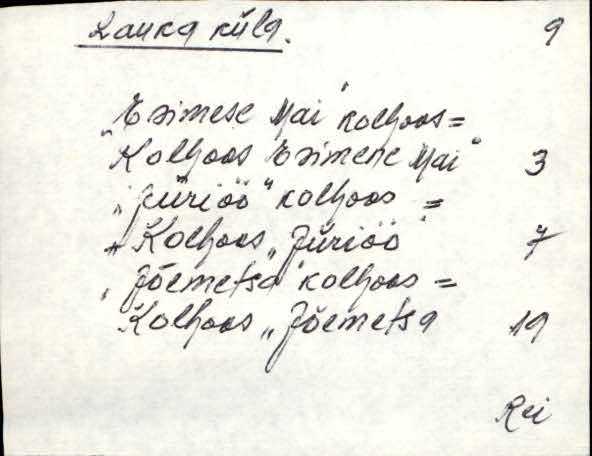 Lauka küla. 9
"Esimese Mai" kolhoos =
"Kolhoos Esimene Mai" 3
"Jüriöö" kolhoos =
"Kolhoos "Jüriöö" 7
"Jõemetsa" kolhoos =
Kolhoos "Jõemetsa 19
Rei